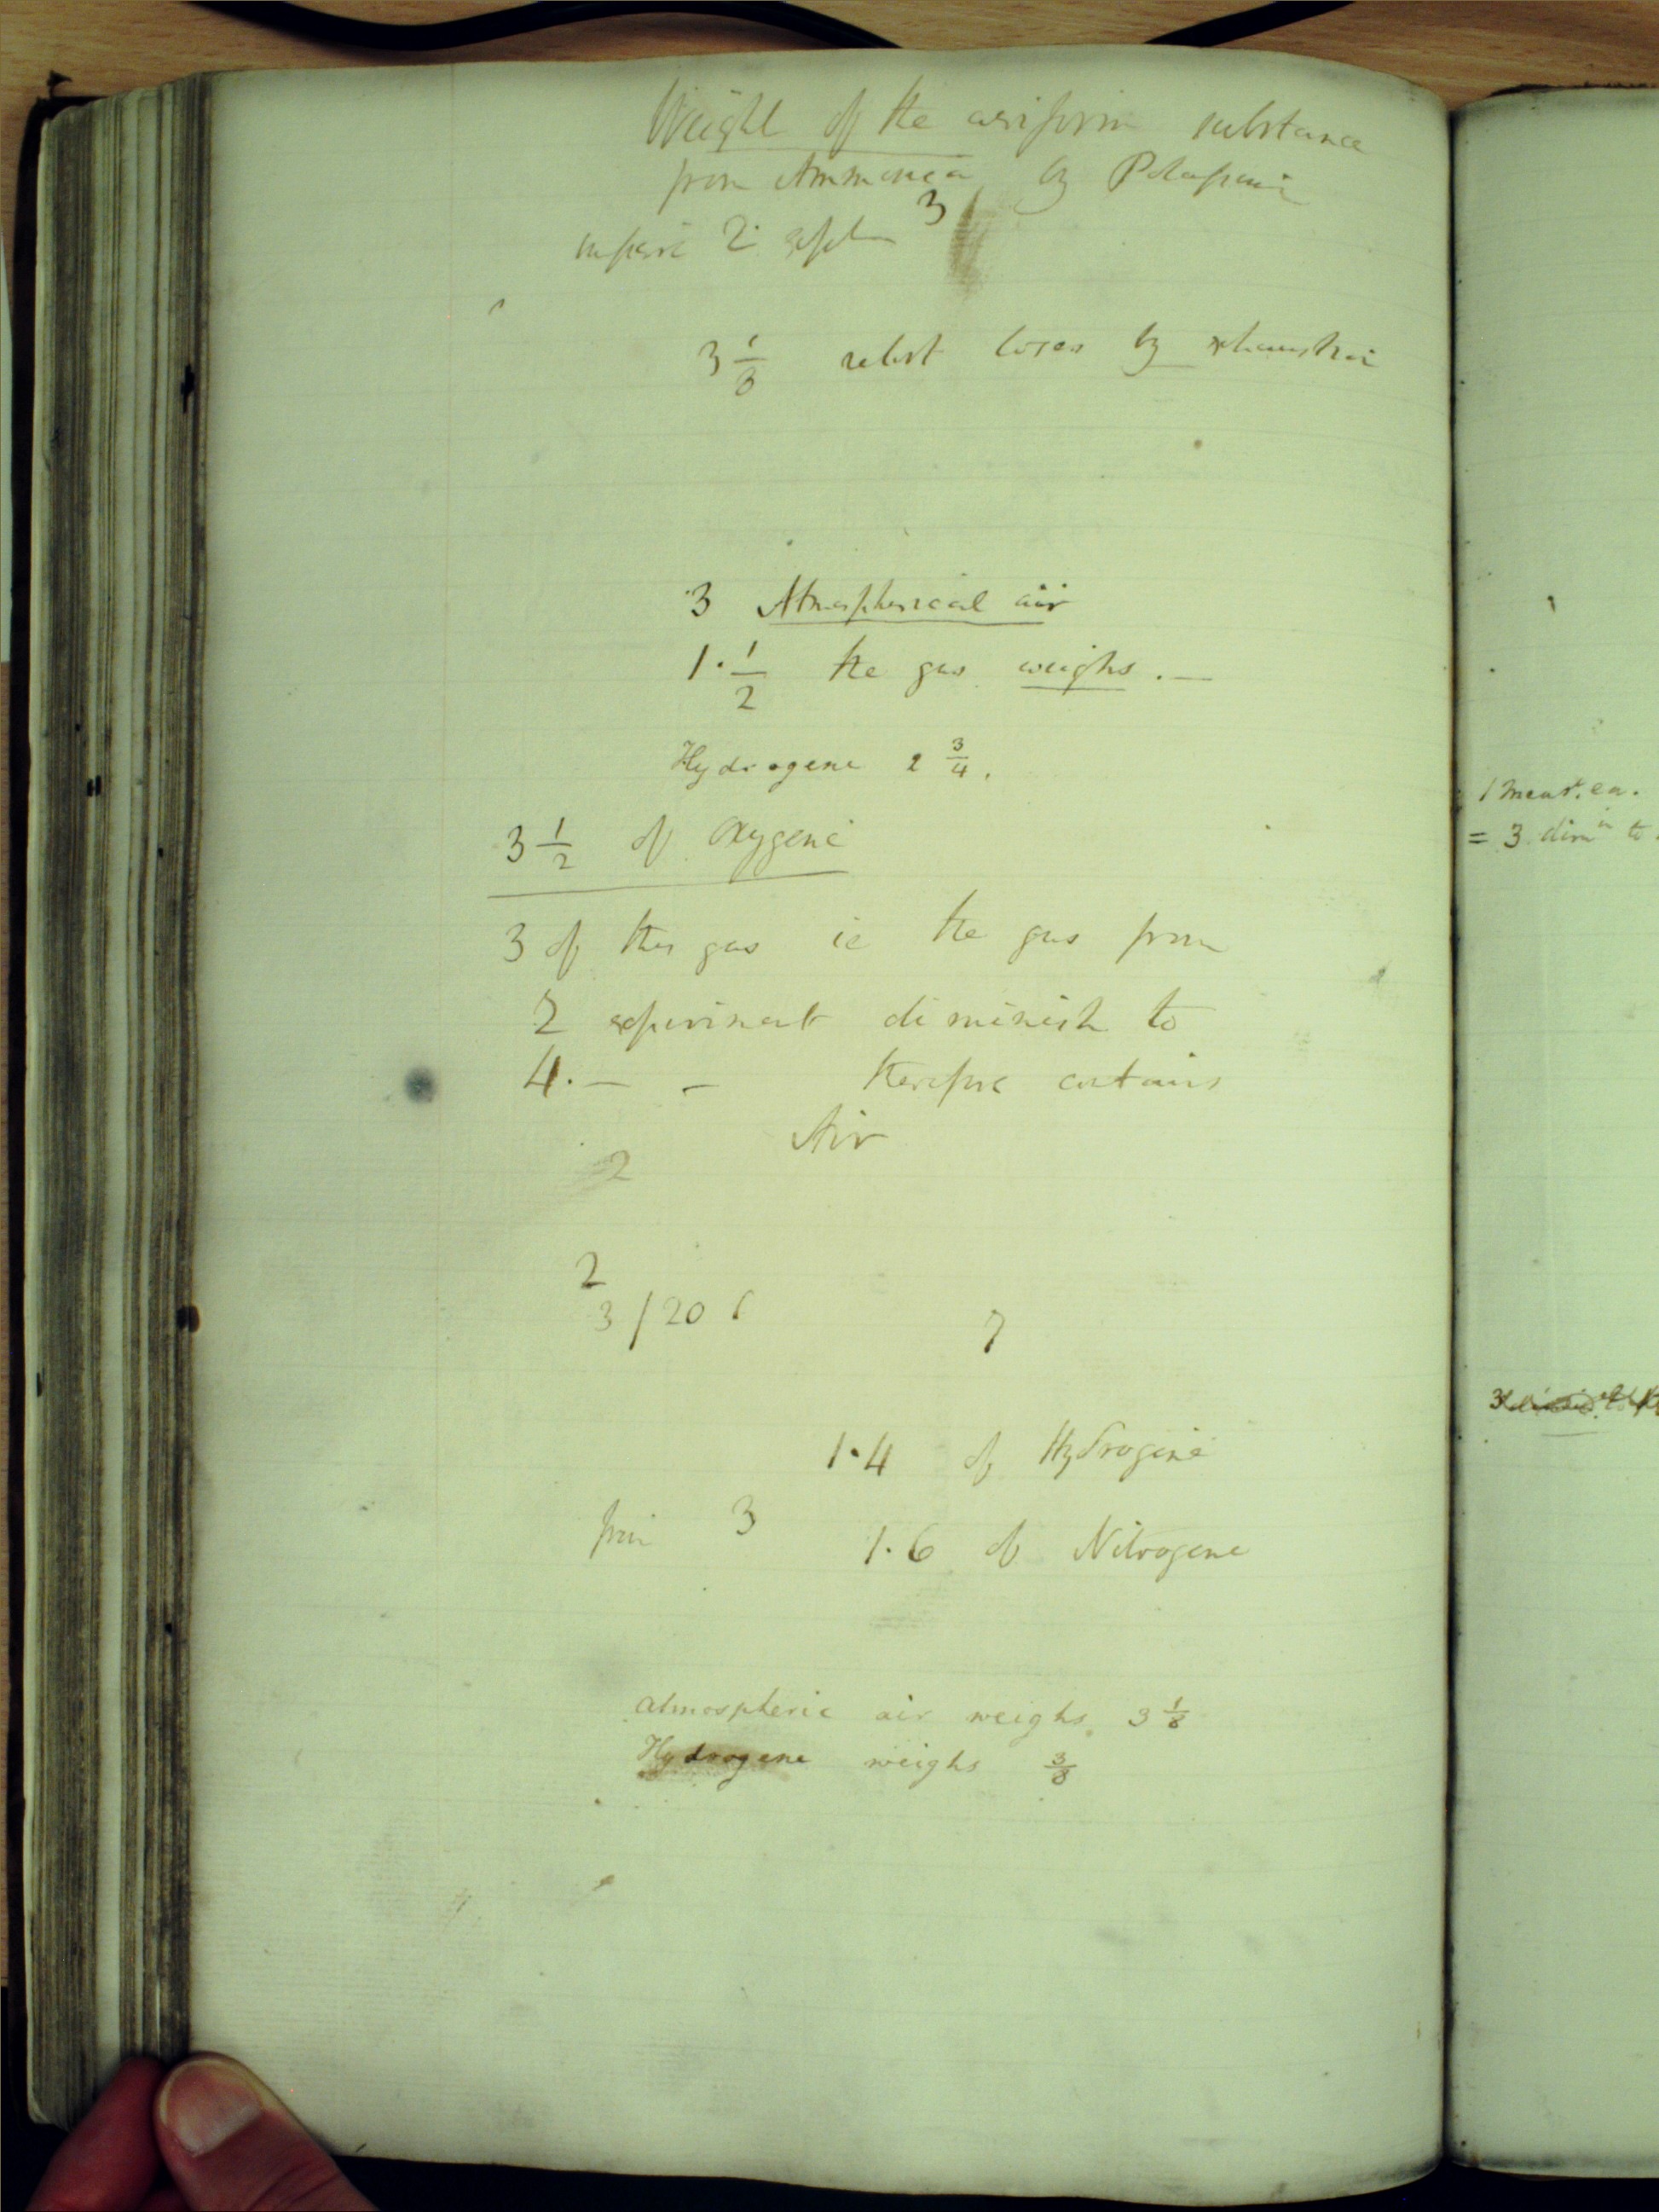 Weight of the aeriform substance
from Ammonia by Potassium
2
3
3 1/8 retort loses by exhaustion
3 Atmospherical air
1·1/2 the gas weighs.—
Hydrogene 2 3/4.
3 1/2 of Oxygene
3 of this gas ie the gas from
2 experiment diminish to
4.— – therefore contains
Air
2
2
3/20
7
1·4 of Hydrogene
from 3
1·6 of Nitrogene
atmospheric air weighs 3 1/8
Hydrogene weighs 3/8
1 meas.
= 3 dimn to
3